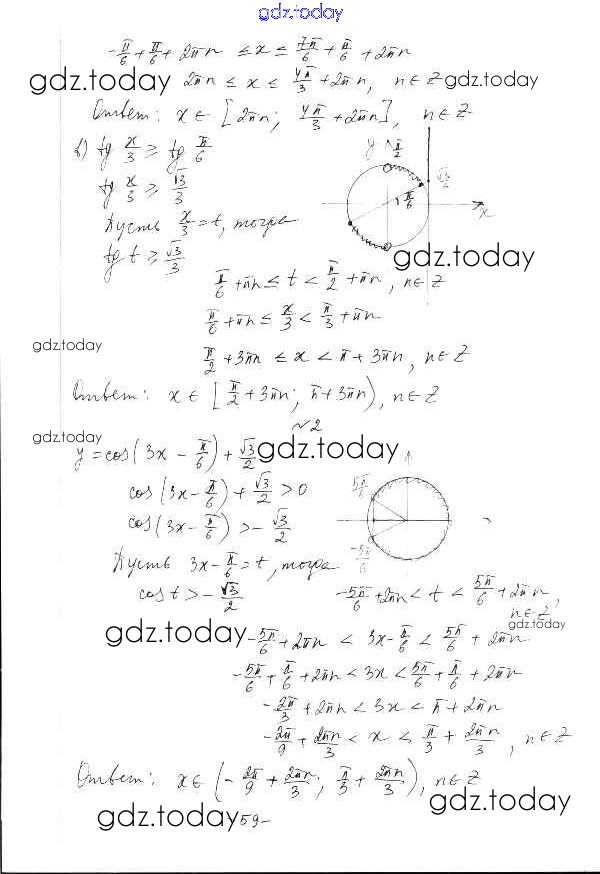 gdz.today
-π/6 + π/6 + 2πn ≤ x ≤ 7π/6 + π/6 + 2πn
gdz.today 2πn ≤ x ≤ 4π/3 + 2πn, n∈Z gdz.today
Ответ: x ∈ [2πn; 4π/3 + 2πn], n∈Z
б) tg x/3 ≥ tg π/6
y π/2
tg x/3 ≥ √3/3
√3/2
π/6
x
Пусть x/3 = t, тогда
tg t ≥ √3/3
gdz.today
π/6 + πn ≤ t < π/2 + πn, n∈Z
π/6 + πn ≤ x/3 < π/3 + πn
gdz.today
π/2 + 3πn ≤ x < π + 3πn, n∈Z
Ответ: x ∈ [π/2 + 3πn; π + 3πn), n∈Z
№2
gdz.today
y = cos(3x - π/6) + √3/2 gdz.today
cos(3x - π/6) + √3/2 > 0
5π/6
cos(3x - π/6) > -√3/2
-5π/6
Пусть 3x - π/6 = t, тогда
cos t > -√3/2
-5π/6 + 2πn < t < 5π/6 + 2πn,
n∈Z
gdz.today
gdz.today
-5π/6 + 2πn < 3x - π/6 < 5π/6 + 2πn
-5π/6 + π/6 + 2πn < 3x < 5π/6 + π/6 + 2πn
-2π/3 + 2πn < 3x < π + 2πn
-2π/9 + 2πn/3 < x < π/3 + 2πn/3, n∈Z
Ответ: x ∈ (-2π/9 + 2πn/3; π/3 + 2πn/3), n∈Z
gdz.today
gdz.today 59-